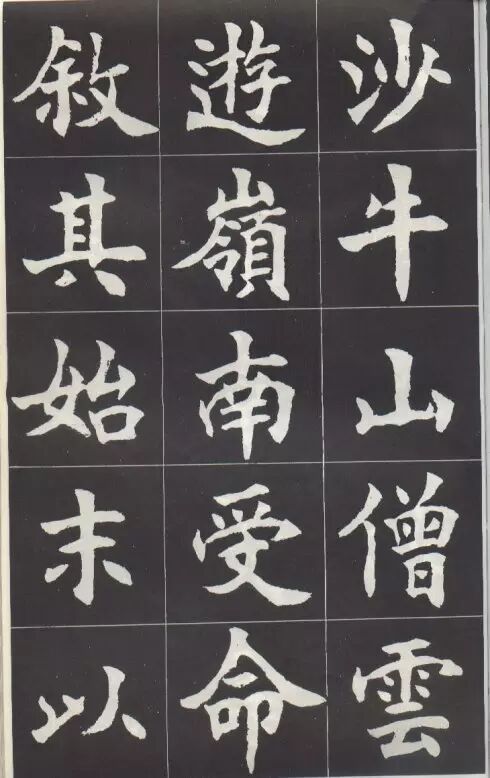 沙牛山僧雲
遊嶺南受命
敘其始末以